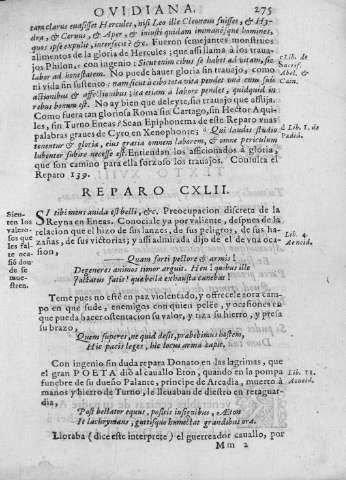 OVIDIANA. 275
tam clarus euasisset Hercules, nisi Leo ille Cleoneus fuisset, & Hy-
dra, & Ceruus, & Aper, & iniusti quidam immanesque homines,
quos ipse expulit, interfecit? &c. Fueron semejantes monstruos
alimentos de la gloria de Hercules; que assi llama à los traua-
jos Philon, con ingenio: Sicut enim cibus se habet ad vitam, se
labor ad honestatem. No puede hauer gloria sin trauajo, como
ni vida sin sustento: nam sicut à cibo tota vita pendet una cum suis
actionibus & affectionibus; ita etiam à labore pendet, quidquid in
rebus bonum est. No ay bien que deleyte, sin trauajo que aflija.
Como fuera tan gloriosa Roma sin Cartago, sin Hector Aqui-
les, sin Turno Eneas? Sean Epiphonema de este Reparo vnas
palabras graues de Cyro en Xenophonte; Qui laudis studio
tenentur & gloria, eius gratia omnem laborem, & omne periculum
lubenter subire necesse est. Entiendan los afficionados à gloria,
que son camino para ella forzoso los trauajos. Consulta el
Reparo 139.
Lib. de
Sacrif.
Abel, &
Cain.
Lib. 1. de
Paedia.
REPARO CXLII.
Sien-
ten los
valero-
sos que
les fal-
te oca-
sió don-
de se
mue-
stren.
SI tibi mens auida est belli, &c. Preocupacion discreta de la
Reyna en Eneas. Conociale ya por valiente, despues de la
relacion que le hizo de sus lanzes, de sus peligros, de sus ha-
zañas, de sus victorias; y assi admirada dijo de el de vna oca-
sion,
Lib. 4.
Aeneid.
Quam forti pectore & armis!
Degeneres animos timor arguit. Heu! quibus ille
Iactatus fatis! quae bella exhausta canebat!
Teme pues no esté en paz violentado, y offrecele aora cam-
po en que sude, enemigos con quien pelée, y ocasiones en
que pueda hacer ostentacion su valor, y tiza su hierro, y presa
su brazo,
Quem superes, ne quid desit, praebebimus hostem,
Hic pacis leges, hic locus arma capit.
Con ingenio sin duda repara Donato en las lagrimas, que
el gran POETA dió al cauallo Eton, quando en la pompa
funebre de su dueño Palante, principe de Arcadia, muerto à
manos y hierro de Turno, le lleuaban de diestro en retaguar-
dia,
Lib. 11.
Aeneid.
Post bellator equus, positis insignibus, Aethon
It lachrymans, guttisque humectat grandibus ora.
Lloraba (dice este interprete) el guerreador cauallo, por
Mm 2